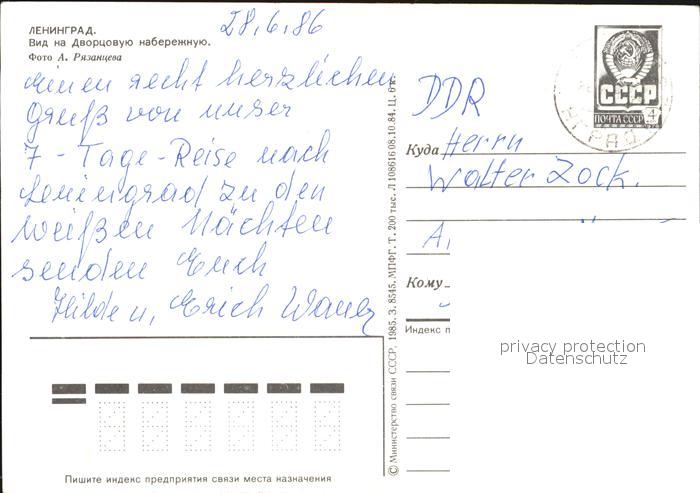 ЛЕНИНГРАД.
Вид на Дворцовую набережную.
Фото А. Рязанцева
28.6.86
Einen recht herzlichen
Gruß von unser
7-Tage-Reise nach
Leningrad zu den
weißen Nächten
senden Euch
Hilde u. Erich
DDR
Куда Herrn
Walter Zock.
A.
Кому
Индекс п
privacy protection
Datenschutz
СССР
ПОЧТА СССР
© Министерство связи СССР, 1985. З. 8545. МПФГ. Т. 200 тыс. Л 108616 08.10.84. Ц. 6 к.
Пишите индекс предприятия связи места назначения